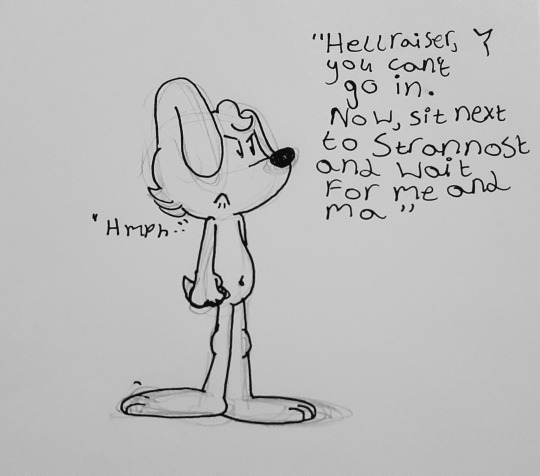 "Hellraiser,
you cant
go in.
Now, sit next
to Strannost
and wait
For me and
ma"
"Hmph.."